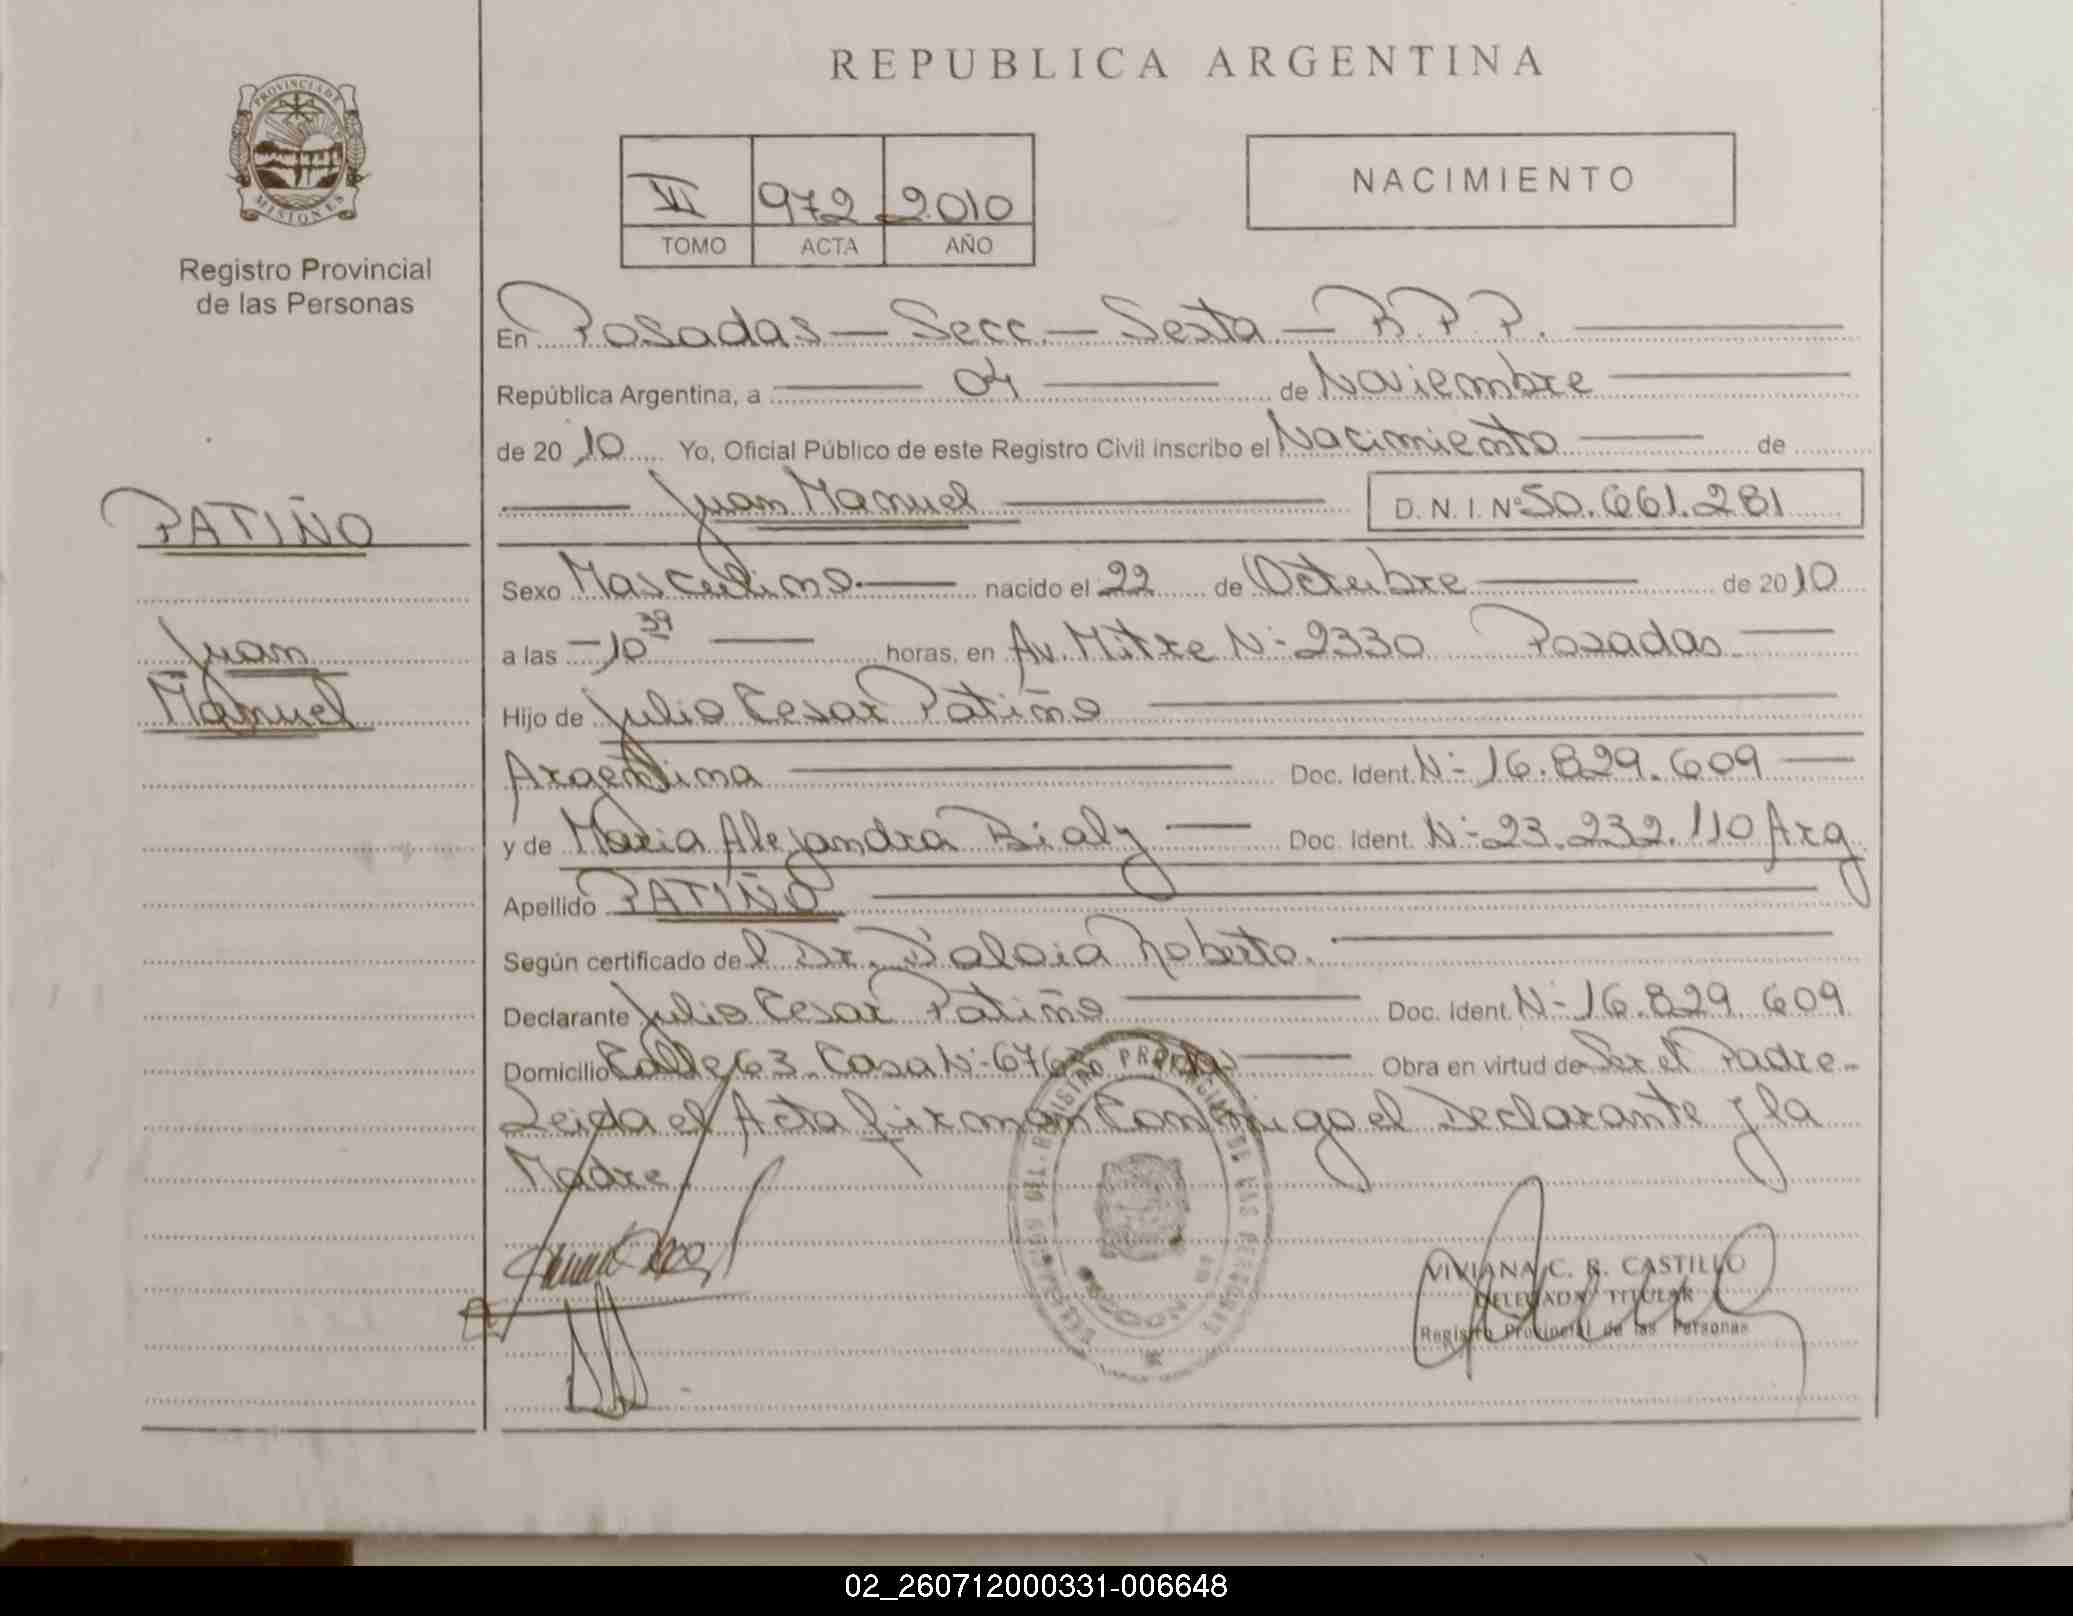 REPUBLICA ARGENTINA
PROVINCIA DE
MISIONES
Registro Provincial
de las Personas
VI 972 2010
TOMO ACTA AÑO
NACIMIENTO
En Posadas — Secc. — Sexta — R.P.P.
República Argentina, a 04 de Noviembre
de 2010 Yo, Oficial Público de este Registro Civil inscribo el Nacimiento de
Juan Manuel D.N.I. Nº 50.661.281
PATIÑO
Juan
Manuel
Sexo Masculino. nacido el 22 de Octubre de 2010
a las 10 39 horas, en Av. Mitre Nº 2330 Posadas
Hijo de Julio Cesar Patiño
Argentina Doc. Ident. Nº 16.829.609
y de Maria Alejandra Bialy Doc. Ident. Nº 23.232.110 Arg
Apellido PATIÑO
Según certificado del Dr. D'aloia Roberto.
Declarante Julio Cesar Patiño Doc. Ident. Nº 16.829.609
Domicilio Calle 63 Casa Nº Obra en virtud de Ser el Padre-
Leida el Acta firman Conmigo el Declarante y la
Madre
REGISTRO PROVINCIAL DE LAS PERSONAS
VIVIANA C. R. CASTILLO
DELEGADA TITULAR
Registro Provincial de las Personas
02_260712000331-006648